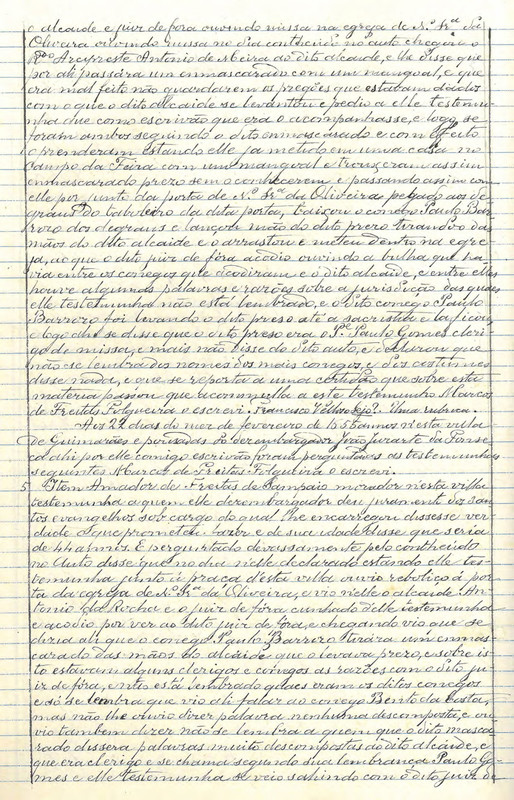 o alcaide e juiz de fora ouvindo missa na egreja de N.ª Sr.ª da
Oliveira ouvindo missa no dia contheudo no auto chegára o
R.do Arcipreste Antonio de Meira ao dito alcaide, e lhe disse que
por ali passára um enmascarado com um mangoal, e que
era mal feito não guardarem os pregões que estabam dados
com o que o dito alcaide se levantou e pedio a elle testemu-
nha que como escrivão que era o acompanhasse, e logo se
foram ambos seguindo o dito enmascarado e com effeito
o prenderam estando elle ja metido em uma casa no
Campo da Feira com um mangual e trouxeram assim
enmascarado prezo sem o conhecerem e passando assim com
elle por junto da porta de N.ª Sr.ª da Oliveira pelgado aos de-
graus do taboleiro da dita porta, baixou o conego Paulo Bar-
rozo dos degraus e lançou mão do dito prezo tirando-o das
mãos do dito alcaide e o arrastou e meteu dentro na egre-
ja, ao que o dito juiz de fóra acodio ouvindo a bulha que ha-
via entre os conegos que acodiram e o dito alcaide, e entre elles
houve algumas palavras e razões sobre a jurisdição das quaes
elle testemunha não está lembrado, e o dito conego Paulo
Barrozo foi levando o dito preso até a sacristia e la ficou
e logo ahi se disse que o dito preso era o P.e Paulo Gomes cleri-
go de missa, e mais não disse do dito auto, e declarou que
não se lembra dos nomes dos mais conegos, e dos costumes
disse nada, e que se reporta a uma certidão que sobre esta
materia passou que acomulla a este testemunho Marcos
de Freitas Folgueira o escrevi. Francisco Velloso Rejo. Uma rubrica.
Aos 22 dias do mez de fevereiro de 1655 annos n'esta villa
de Guimarães e pousadas do dezembargador João Juzarte da Fonse-
ca ahi por elle comigo escrivão foram perguntados as testemunhas
seguintes Marcos de Freitas Folgueira o escrevi.
5 Item Amador de Freitas de Sampaio morador n'esta villa
testemunha a quem elle dezembargador deu juramento dos San-
tos evangelhos sob cargo do qual lhe encarregou dissesse ver-
dade o que prometeu fazer e de sua idade disse que seria
de 44 annos. E perguntado devassamente pelo contheudo
no Auto disse que no dia nelle declarado estando elle tes-
temunha junto á praça d'esta villa ouvio reboliço á por-
ta da egreja de N.ª Sr.ª da Oliveira, e vio nelle o alcaide An-
tonio da Rocha e o juiz de fóra cunhado delle testemunha
e acodio por ver ao dito juiz de fóra, e chegando vio que se
dizia ali que o conego Paulo Barrozo tirára um enmas-
carado das mãos do alcaide que o levava prezo, e sobre is-
to estavam alguns clerigos e conegos as razões com o dito ju-
iz de fóra, e não está lembrado quaes eram os ditos conegos
e só se lembra que vio ali falar ao conego Bento da Costa,
mas não lhe ouvio dizer palavra nenhuma descomposta, e ou-
vio tambem dizer não se lembra a quem que o dito masca-
rado dissera palavras muito descompostas ao dito alcaide, e
que era clerigo e se chama segundo sua lembrança Paulo Go-
mes e elle testemunha se veio sahindo com o dito juiz de